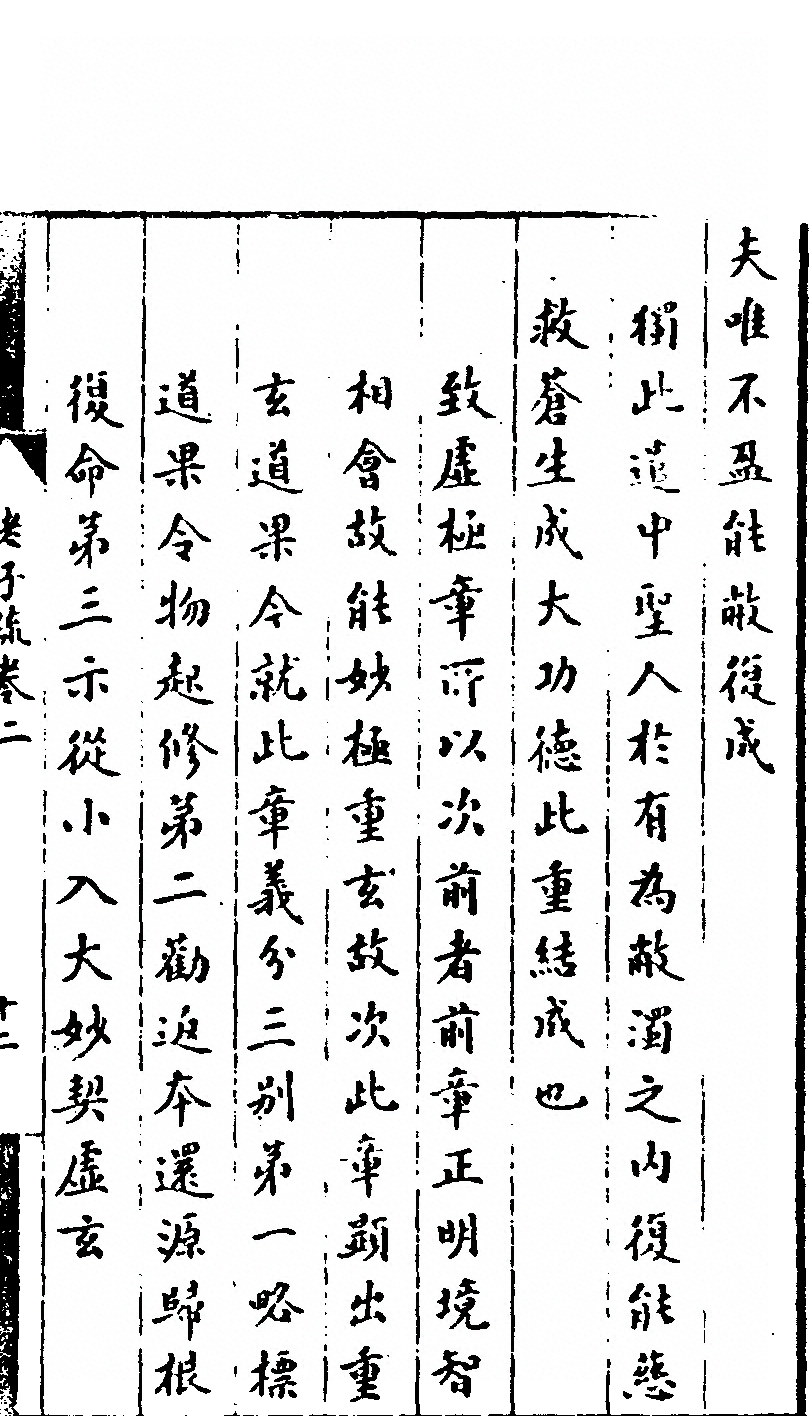 夫唯不盈能敝復成
獨此道中聖人於有為敝濁之內復能慈
救蒼生成大功德此重結成也
致虛極章所以次前者前章正明境智
相會故能妙極重玄故次此章顯出重
玄道果今就此章義分三別第一略標
道果令物起修第二勸返本還源歸根
復命第三示從小入大妙契虛玄
老子疏卷二
十二